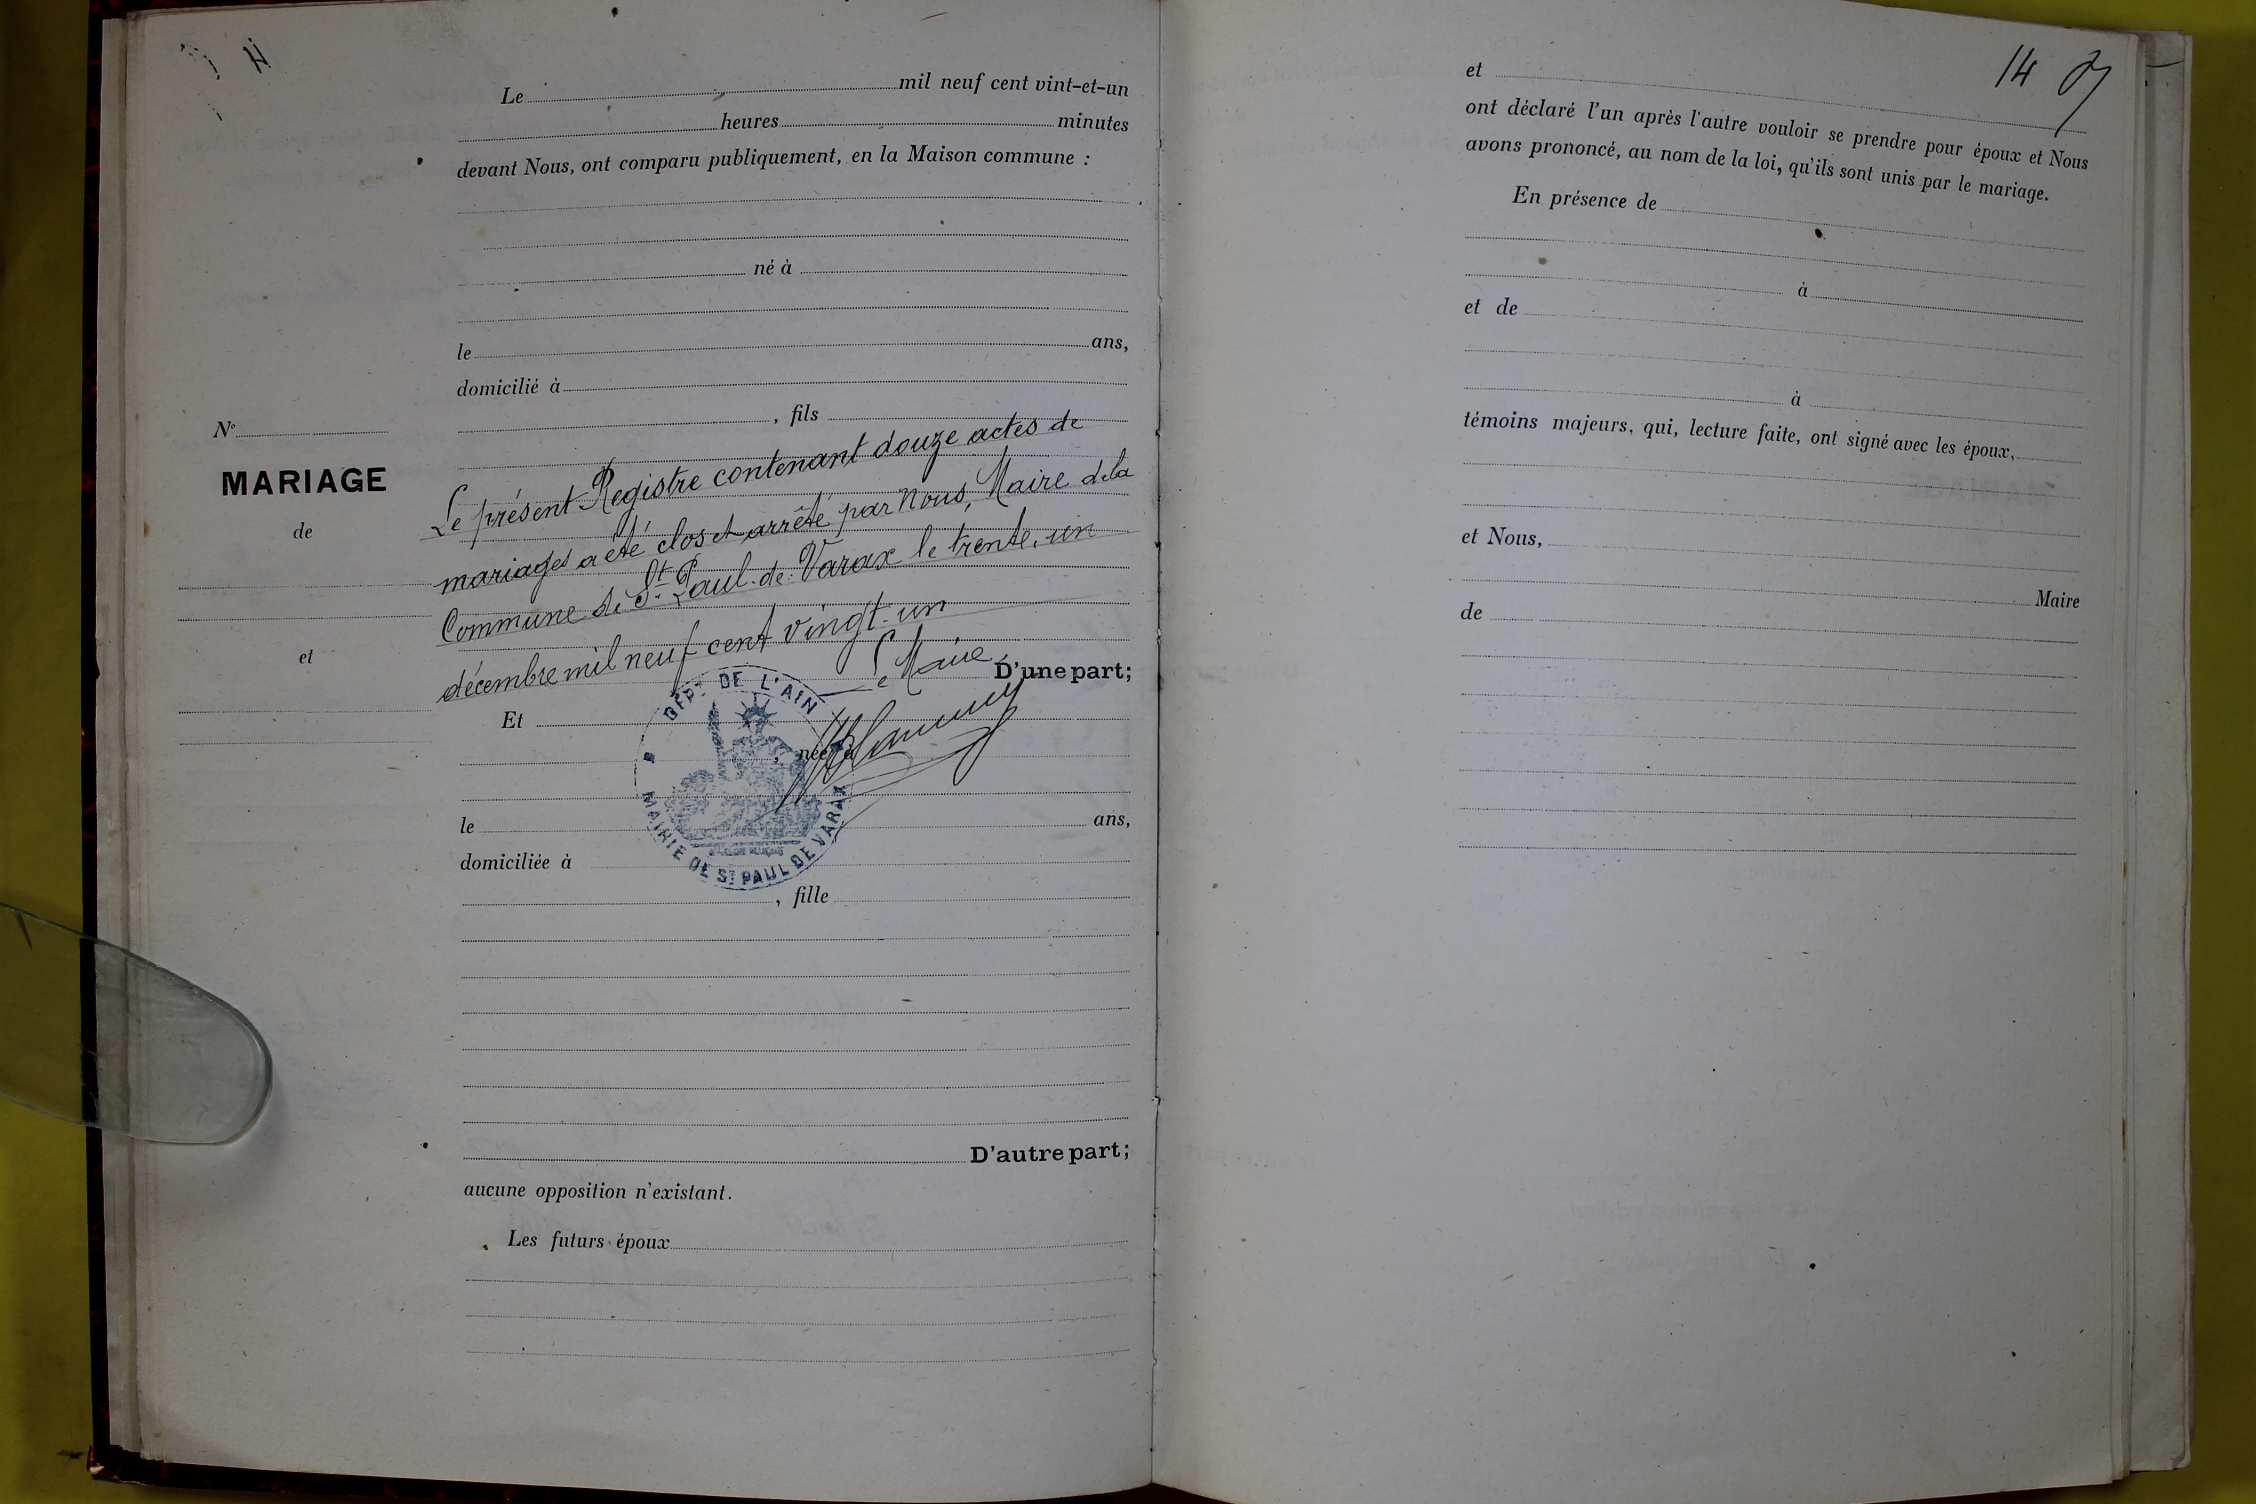 Le mil neuf cent vint-et-un
heures minutes
devant Nous, ont comparu publiquement, en la Maison commune :
né à
le ans,
domicilié à
, fils
N°
MARIAGE
de
et
Le présent Registre contenant douze actes de
mariages a été clos et arrêté par Nous, Maire de la
Commune de St. Paul-de-Varax le trente-un
décembre mil neuf cent vingt-un
Le Maire
D'une part;
Et
, née à
le ans,
domiciliée à
, fille
DÉPT DE L'AIN
MAIRIE DE ST PAUL DE VARAX
D'autre part;
aucune opposition n'existant.
Les futurs époux
14
et
ont déclaré l'un après l'autre vouloir se prendre pour époux et Nous
avons prononcé, au nom de la loi, qu'ils sont unis par le mariage.
En présence de
à
et de
à
témoins majeurs, qui, lecture faite, ont signé avec les époux,
et Nous,
Maire
de